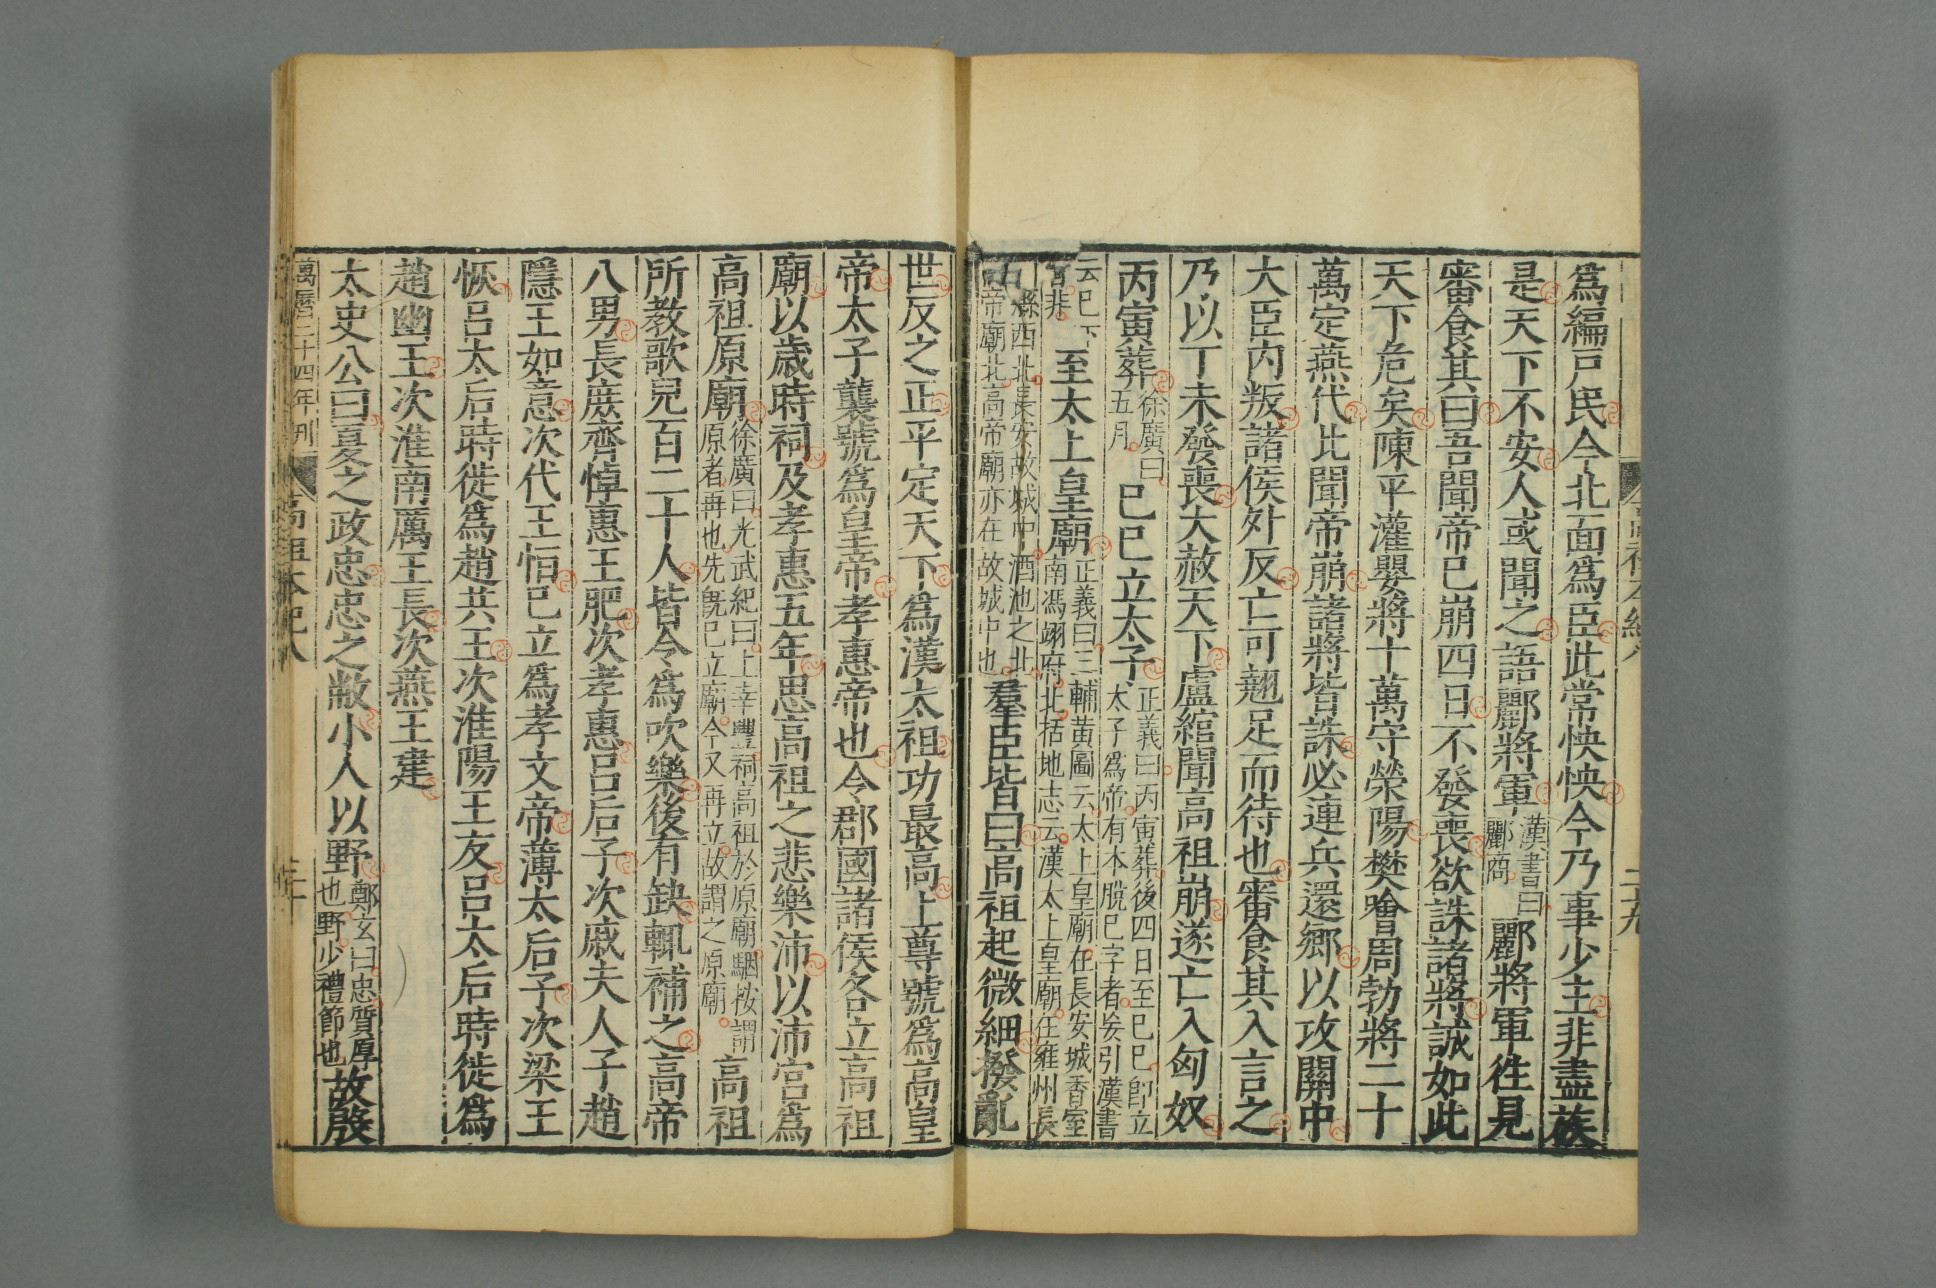 為編戶民今北面為臣此常怏怏今乃事少主非盡族
是天下不安人或聞之語酈將軍漢書曰酈商酈將軍往見
審食其曰吾聞帝已崩四日不發喪欲誅諸將誠如此
天下危矣陳平灌嬰將十萬守滎陽樊噲周勃將二十
萬定燕代比聞帝崩諸將皆誅必連兵還鄉以攻關中
大臣內叛諸侯外反亡可翹足而待也審食其入言之
乃以丁未發喪大赦天下盧綰聞高祖崩遂亡入匈奴
丙寅葬徐廣曰五月己巳立太子正義曰丙寅葬後四日至己巳即立太子為帝有本脫巳字者妄引漢書
云已下者非至太上皇廟正義曰三輔黃圖云太上皇廟在長安城香室南馮翊府北括地志云漢太上皇廟在雍州長
縣西北長安故城中酒池之北帝廟北高帝廟亦在故城中也羣臣皆曰高祖起微細撥亂
世反之正平定天下為漢太祖功最高上尊號為高皇
帝太子襲號為皇帝孝惠帝也令郡國諸侯各立高祖
廟以歲時祠及孝惠五年思高祖之悲樂沛以沛宮為
高祖原廟徐廣曰光武紀曰上幸豐祠高祖於原廟駰按謂原者再也先既已立廟今又再立故謂之原廟高祖
所教歌兒百二十人皆令為吹樂後有缺輒補之高帝
八男長庶齊悼惠王肥次孝惠呂后子次戚夫人子趙
隱王如意次代王恒已立為孝文帝薄太后子次梁王
恢呂太后時徙為趙共王次淮陽王友呂太后時徙為
趙幽王次淮南厲王長次燕王建
太史公曰夏之政忠忠之敝小人以野鄭玄曰忠質厚也野少禮節也故殷
萬曆二十四年刊 高祖本紀八